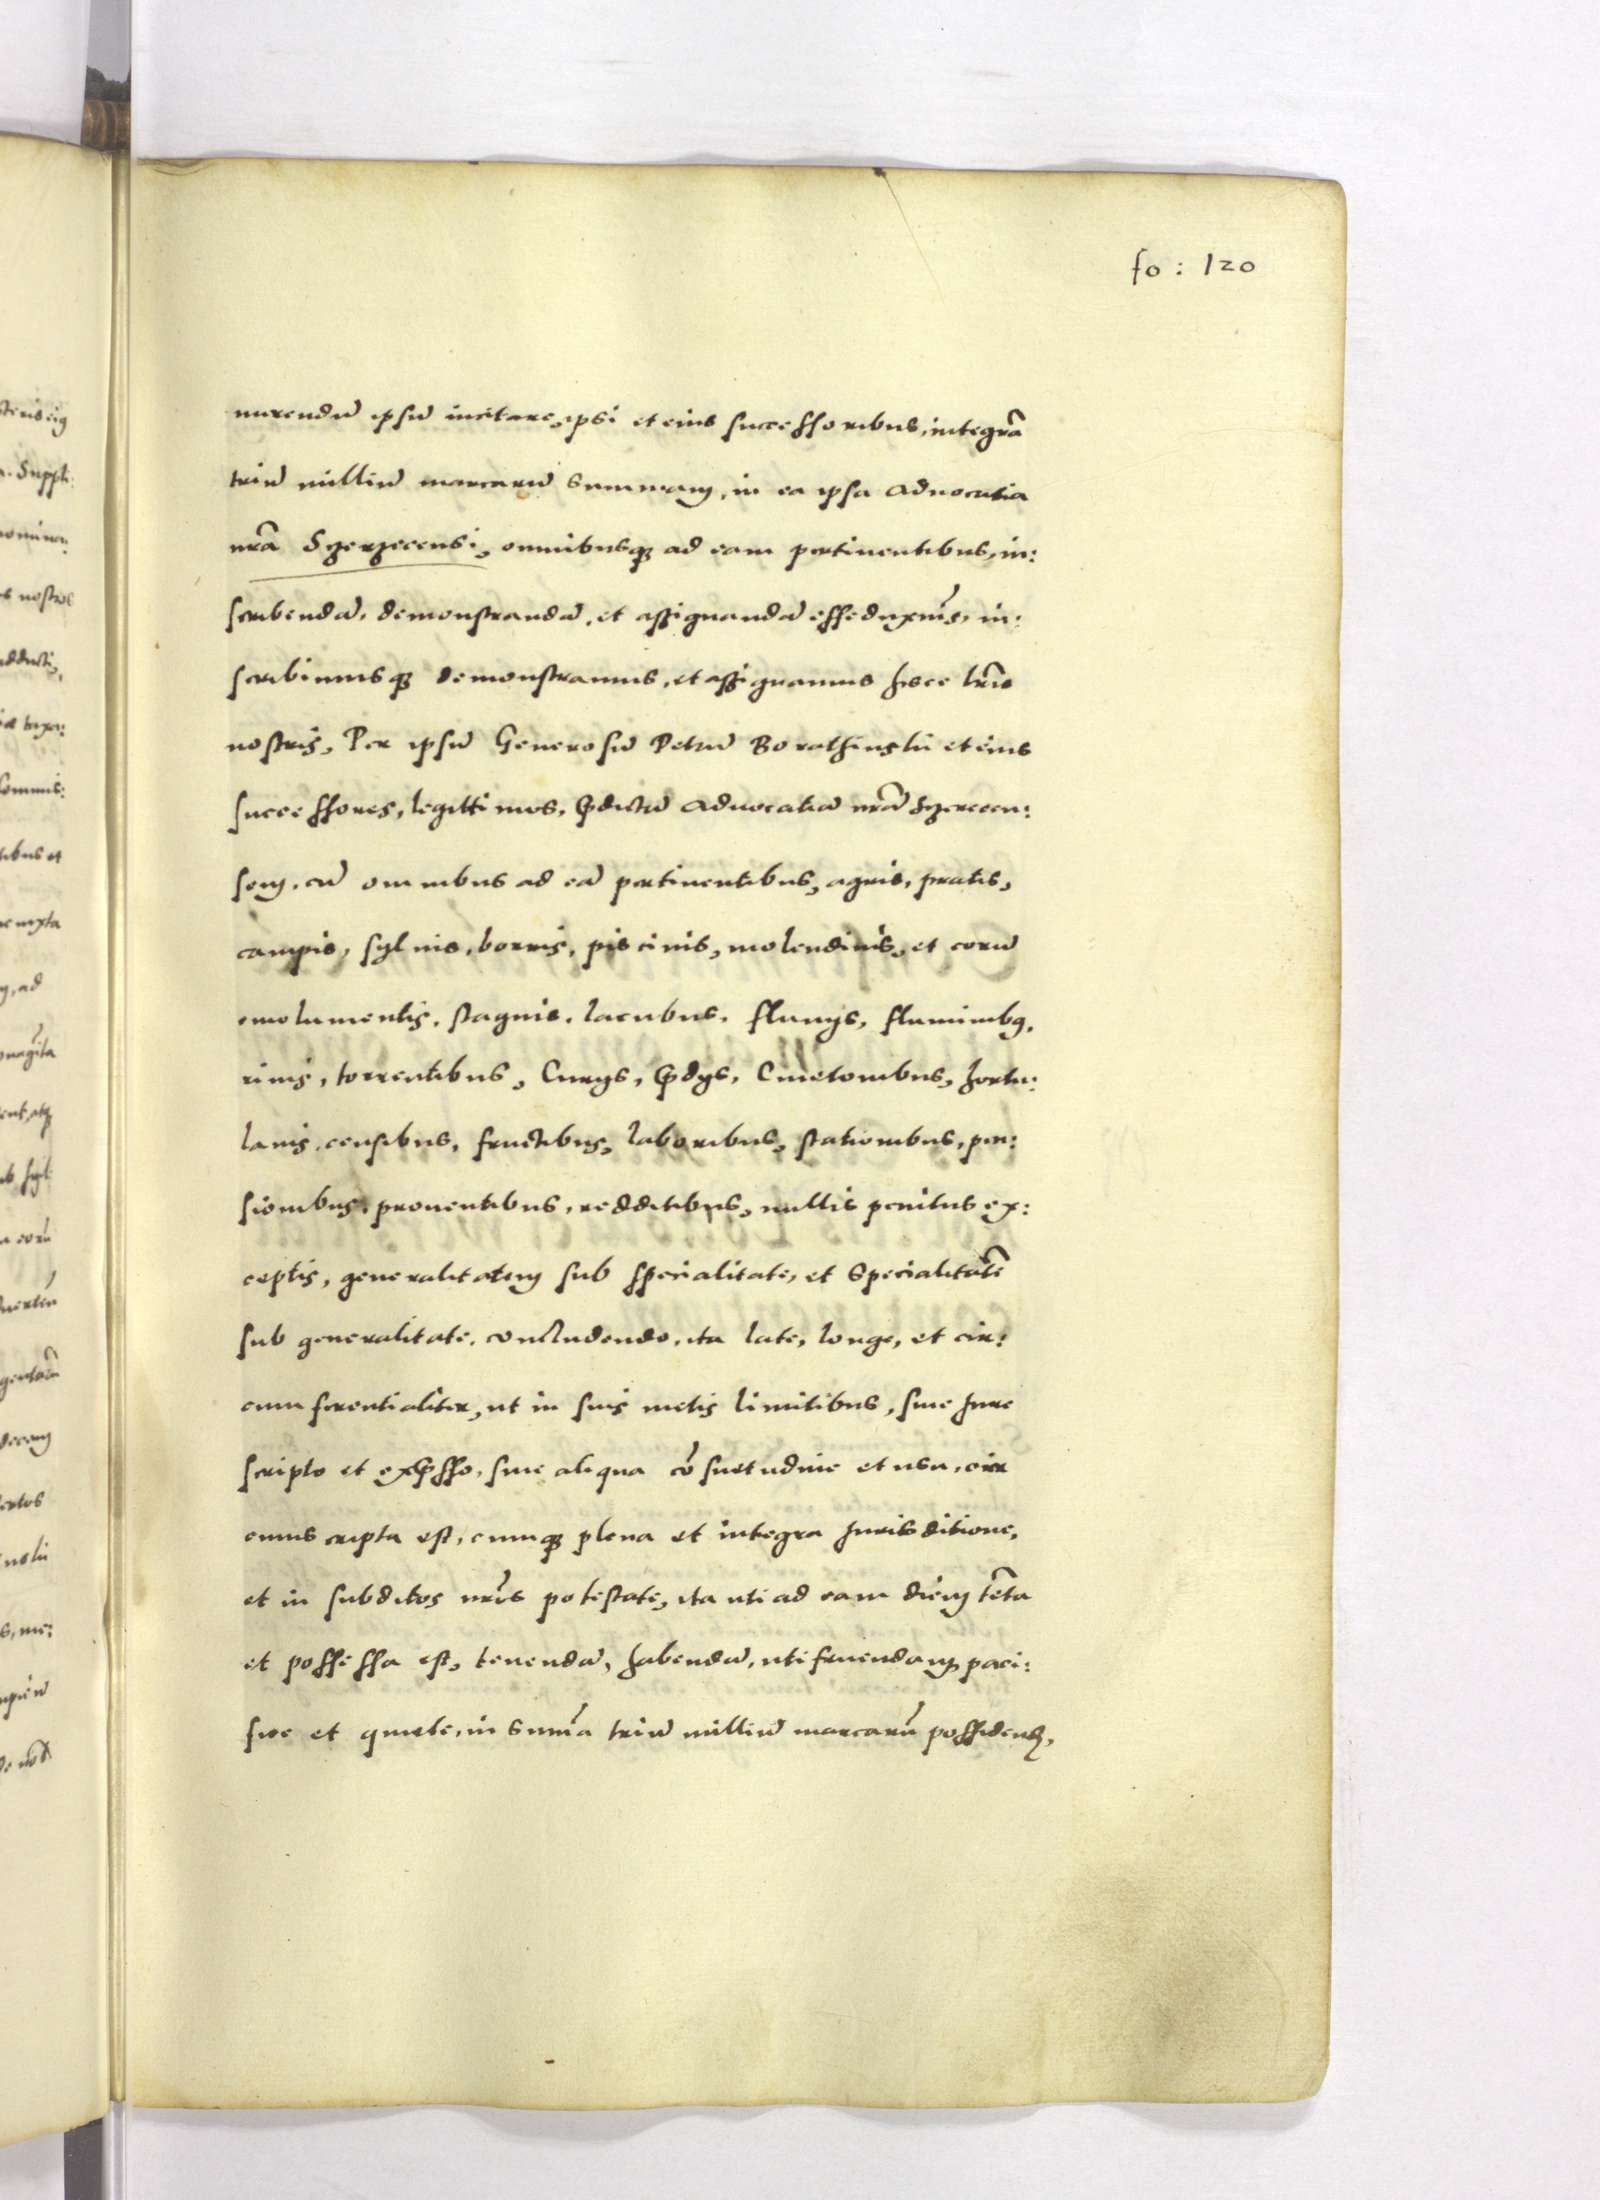 fo: 120
nurendū ipsū incitare, ipsi et eius successoribus, integrā
triū milliū marcarū summam, in ea ipsa aduocatia
nrā Szerzecensi, omnibusq3 ad eam pertinentibus, in:
scribendā, demonstrandā, et assignandā esse duximꝰ, in:
scribimusq3 demonstramus, et assignamus hisce lrīs
nostris, Per ipsū Generosū Petrū Borathinskii et eius
successores, legittimos, p̄dictā Aduocatiā nrā Szerecen:
sem, cū omnibus ad eā pertinentibus, agris, pratis,
campis, syluis, borris, piscinis, molendinis, et eorū
emolumentis, stagnis, lacubus, fluuijs, fluminibꝰ,
riuis, torrentibus, Curijs, p̄dijs, Cmetonibus, hortu:
lanis, censibus, fructibus, laboribus, stationibus, pen:
sionibus, prouentibus, redditibus, nullis penitus ex:
ceptis, generalitatem sub specialitate, et Specialitatē
sub generalitate, concludendo, ita late, longe, et cir:
cumferentialiter, ut in suis metis limitibus, siue Jure
scripto et exp̄sso, siue aliqua cōsuetudine et usu, circ
cumscripta est, cumq3 plena et integra Jurisditione,
et in subditos nrōs potestate, ita uti ad eam diem tēta
et possessa est, tenendā, habendā, utifruendam paci:
fice et quiete, in Summa triū milliū marcarū possidend̄,